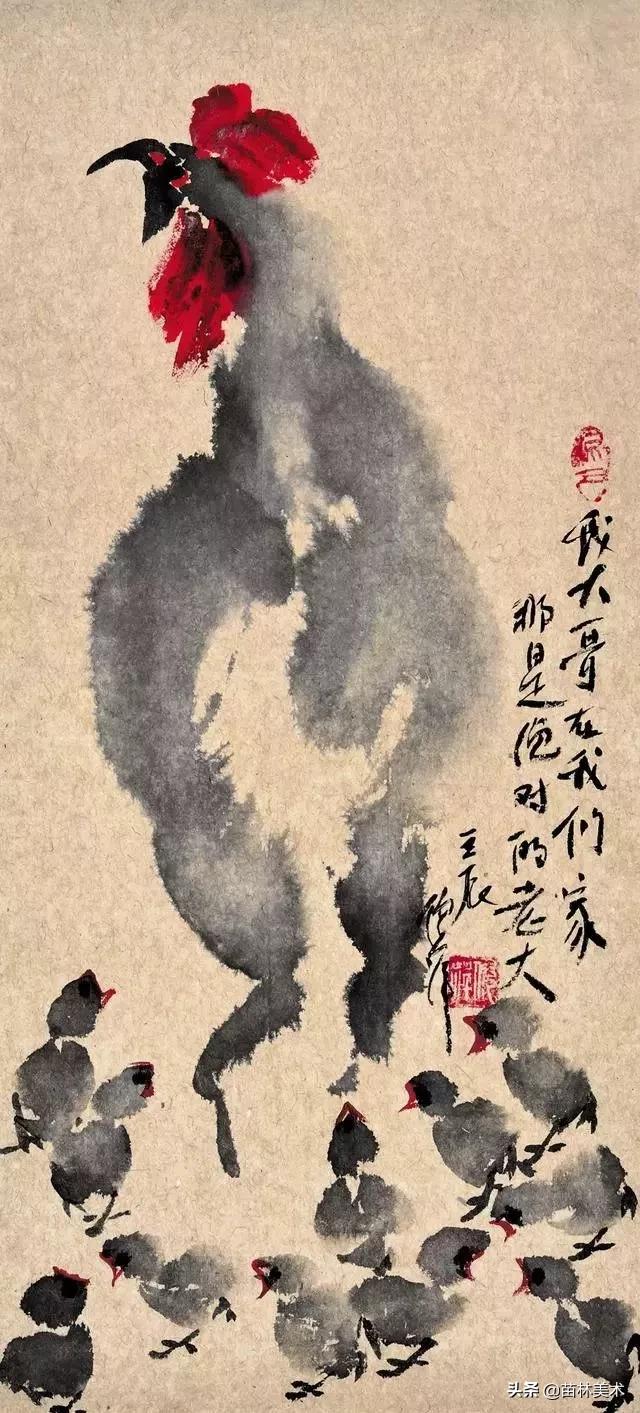 我大哥在我们家
那是绝对的老大
壬辰
头条 @苗林美术